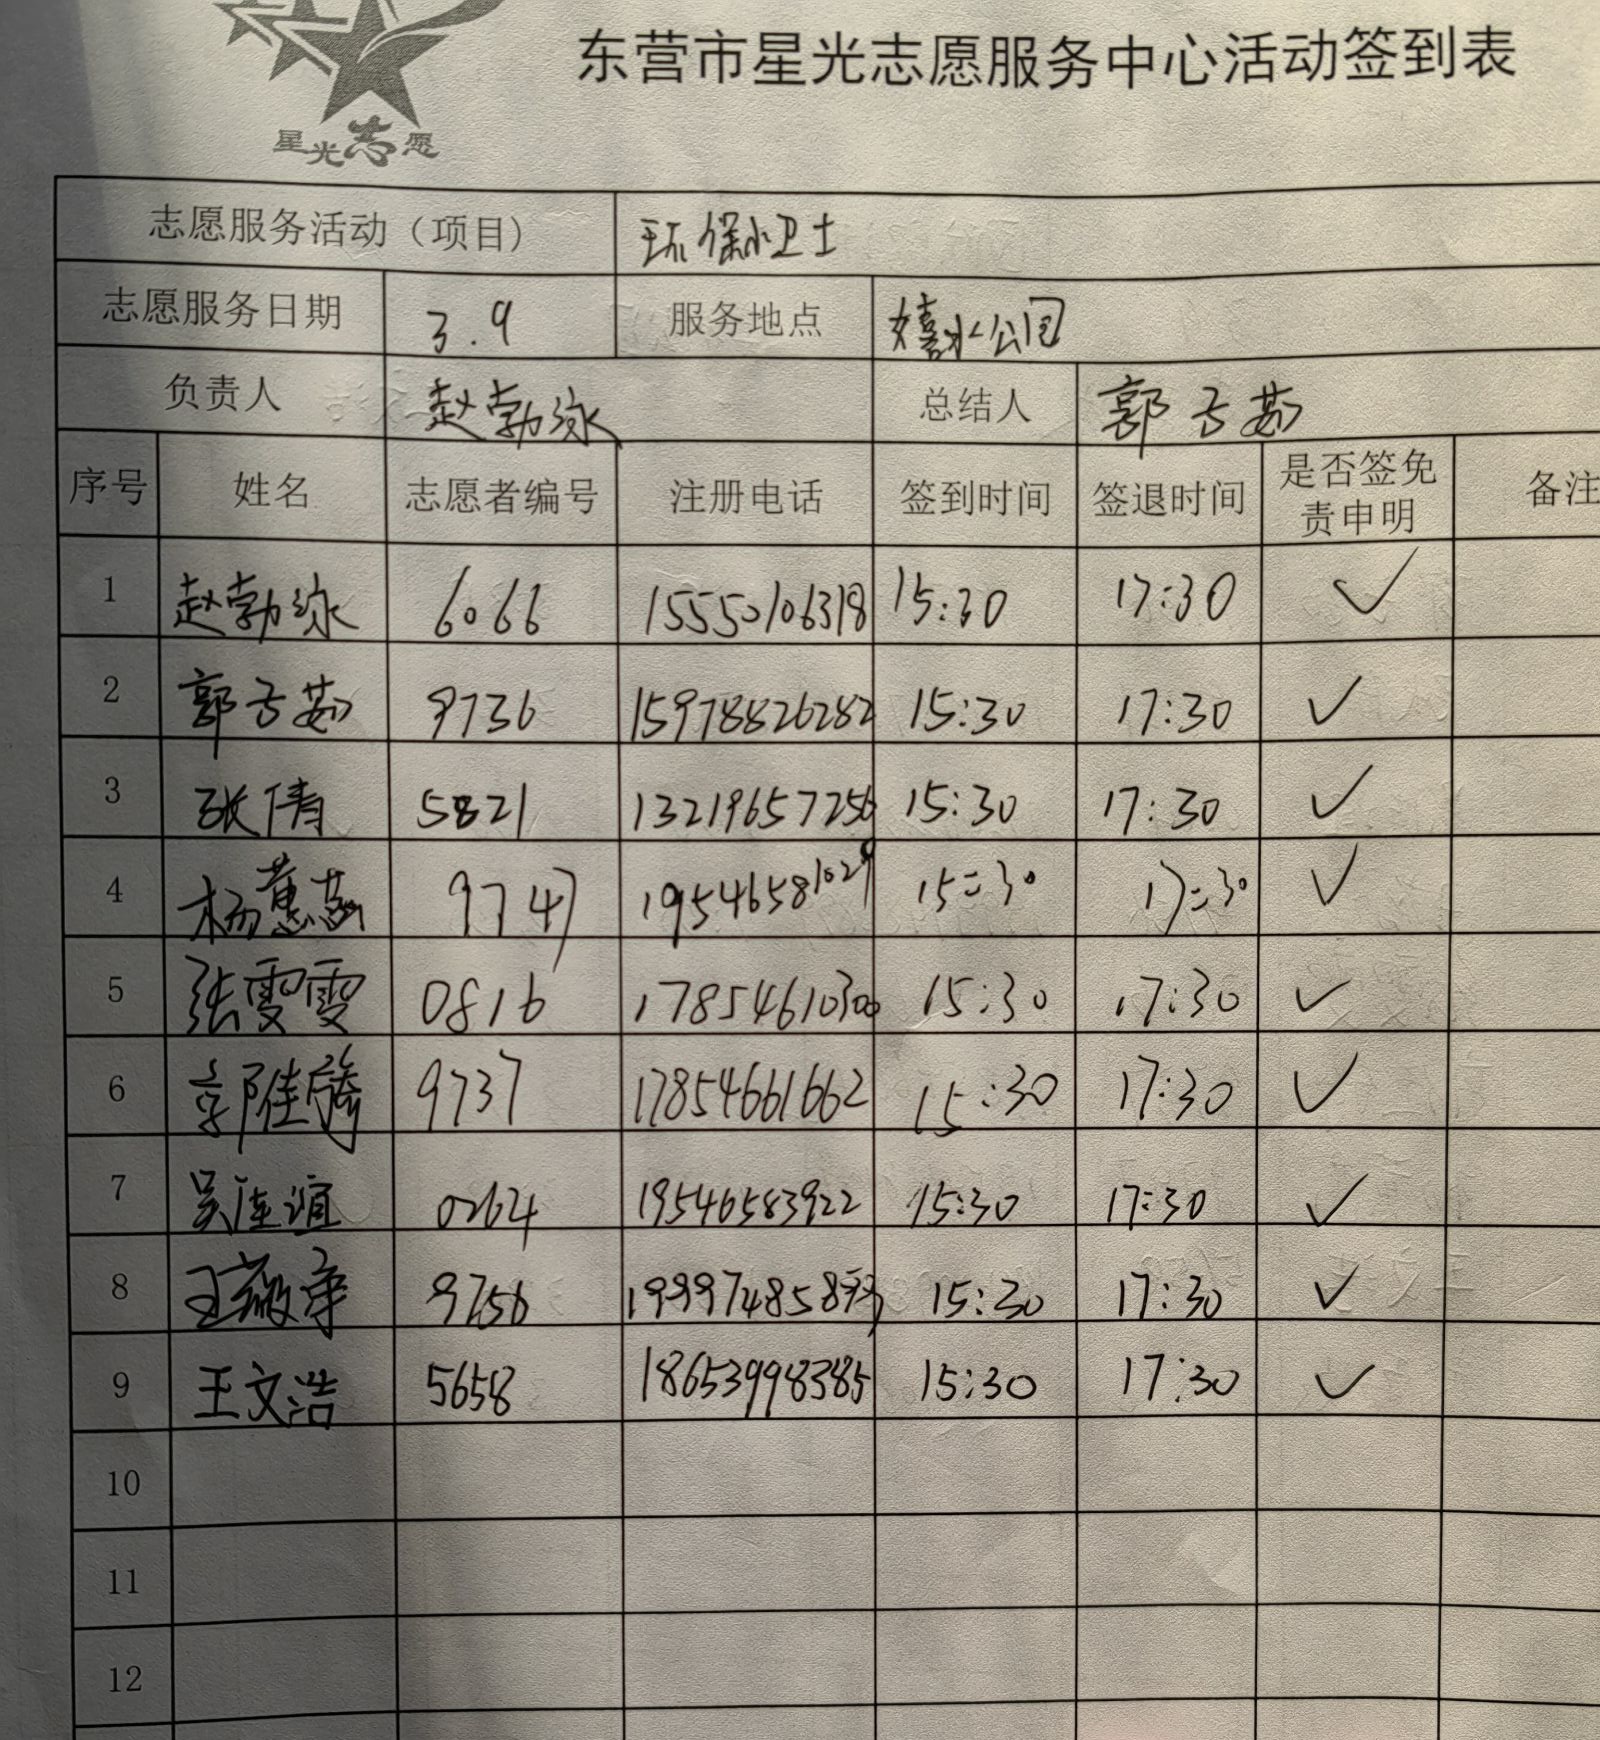 东营市星光志愿服务中心活动签到表
星光志愿
志愿服务活动（项目） 环保小卫士
志愿服务日期 3.9 服务地点 嬉水公园
负责人 赵勃泳 总结人 郭子茹
序号 姓名 志愿者编号 注册电话 签到时间 签退时间 是否签免责申明 备注
1 赵勃泳 6066 15550106318 15:30 17:30 ✓
2 郭子茹 9736 15978826282 15:30 17:30 ✓
3 张倩 5821 13219657256 15:30 17:30 ✓
4 杨蕙 9747 19546581029 15:30 17:30 ✓
5 张雯雯 0816 17854610300 15:30 17:30 ✓
6 郭佳 9737 17854661662 15:30 17:30 ✓
7 吴佳谊 0264 19546583922 15:30 17:30 ✓
8 王 9756 15:30 17:30 ✓
9 王文浩 5658 18653998385 15:30 17:30 ✓
10
11
12